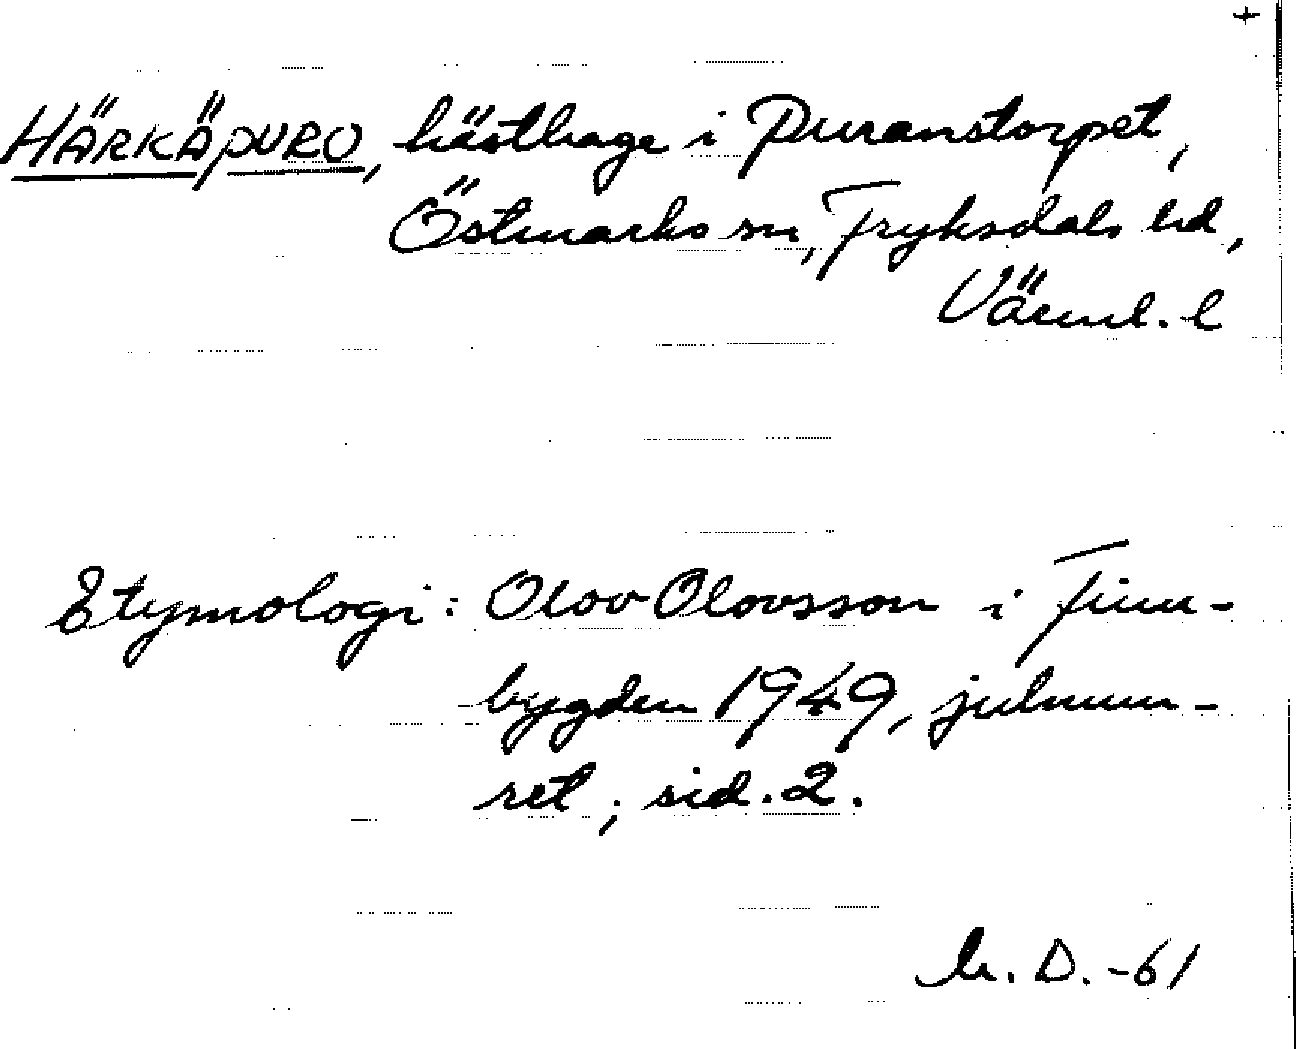 +
HÄRKÄPURO, hästhage i Puranstorpet,
Östmarks sn, Fryksdals hd,
Värml. l
Etymologi: Olov Olovsson i Finn-
bygden 1949, julnum-
ret, sid. 2.
D. -61